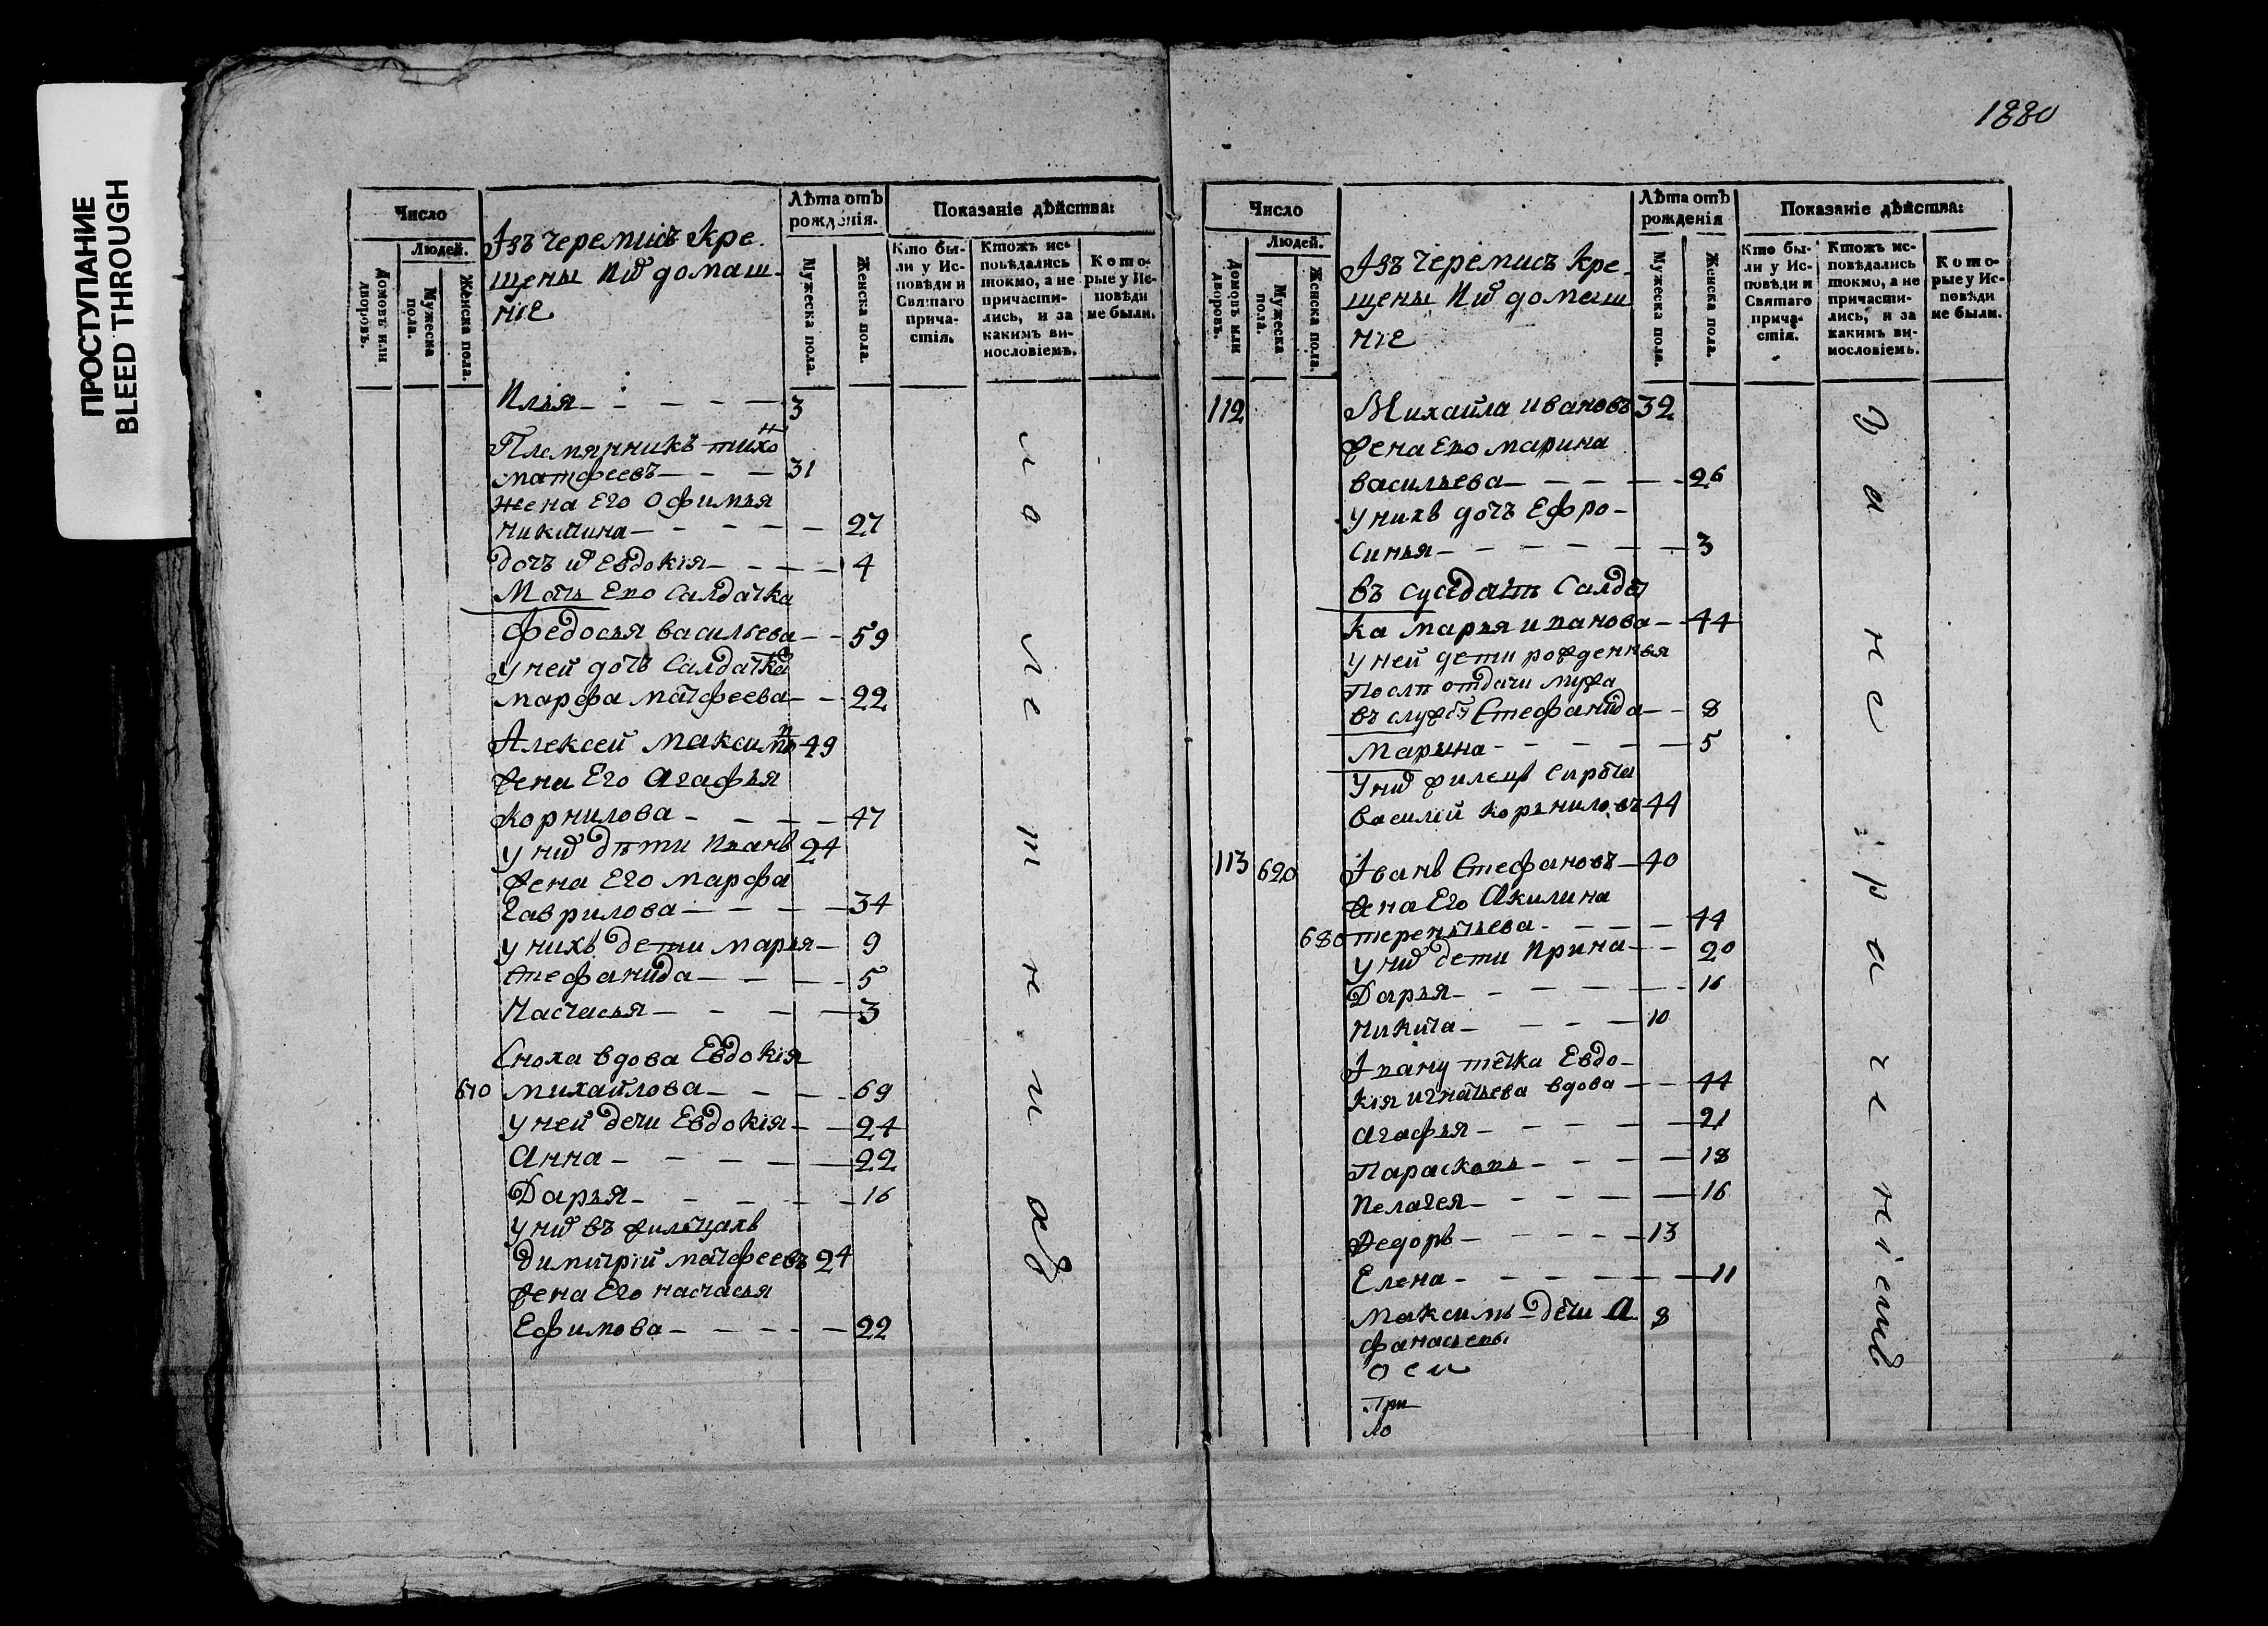 ПРОСТУПАНИЕ
BLEED THROUGH
Число
Людей.
Домовъ или дворовъ.
Мужеска пола.
Женска пола.
Iзъ черемисъ кре
щены иѿ домаш
нiе
Лѣта отъ
рожденія.
Мужеска пола.
Женска пола.
Показаніе дѣйства:
Кто бы-
ли у Ис-
повѣди и
Святаго
прича-
стія.
Ктожъ ис-
повѣдались
токмо, а не
причасти-
лись, и за
какимъ ви-
нословіемъ.
Кото-
рые у Ис-
повѣди
не были.
Илья 3
Племянникъ тихонъ
матфеевъ 31
жена Его Офимья
никитина 27
дочь иѿ Евдокія 4
Мать Его Салдатка
Федосья васильева 59
у ней дочь Салдатка
марфа матфеева 22
Алексей максимо 49
жена Его Агафья
корнилова 47
у ниѿ дѣти Иванъ 24
жена Его марфа
гаврилова 34
у нихъ дети марья 9
стефанида 5
Настасья 3
Сноха вдова Евдокія
610 михайлова 69
у ней дети Евдокія 24
Анна 22
Дарья 16
у ниѿ въ жильцахъ
димитрій матфеевъ 24
жена Его настасья
Ефимова 22
малолетнимъ
1880
Число
Людей.
Домовъ или дворовъ.
Мужеска пола.
Женска пола.
Iзъ черемисъ кре
щены иѿ домаш
нiе
Лѣта отъ
рожденія
Мужеска пола.
Женска пола.
Показаніе дѣйства:
Кто бы-
ли у Ис-
повѣди и
Святаго
прича-
стія.
Ктожъ ис-
повѣдались
токмо, а не
причасти-
лись, и за
какимъ ви-
нословіемъ.
Кото-
рые у Ис-
повѣди
не были.
112 Михайла ивановъ 32
жена Его марина
васильева 26
у нихъ дочь Ефро-
синья 3
въ суседахъ Салдат
ка марья иванова 44
у ней дети рожденныя
послѣ отдачи мужа
въ службу Стефанида 8
Марина 5
У ниѿ жилецъ Сирота
василій корниловъ 44
113 620 Iванъ Стефановъ 40
жена Его Акилина
680 терентьева 44
у ниѿ дети Ирина 20
Дарья 16
никита 10
Iвану тетка Евдо-
кія игнатьева вдова 44
Агафья 21
Параскева 18
Пелагея 16
Федоръ 13
Елена 11
максимъ дети А 8
фанасьевы